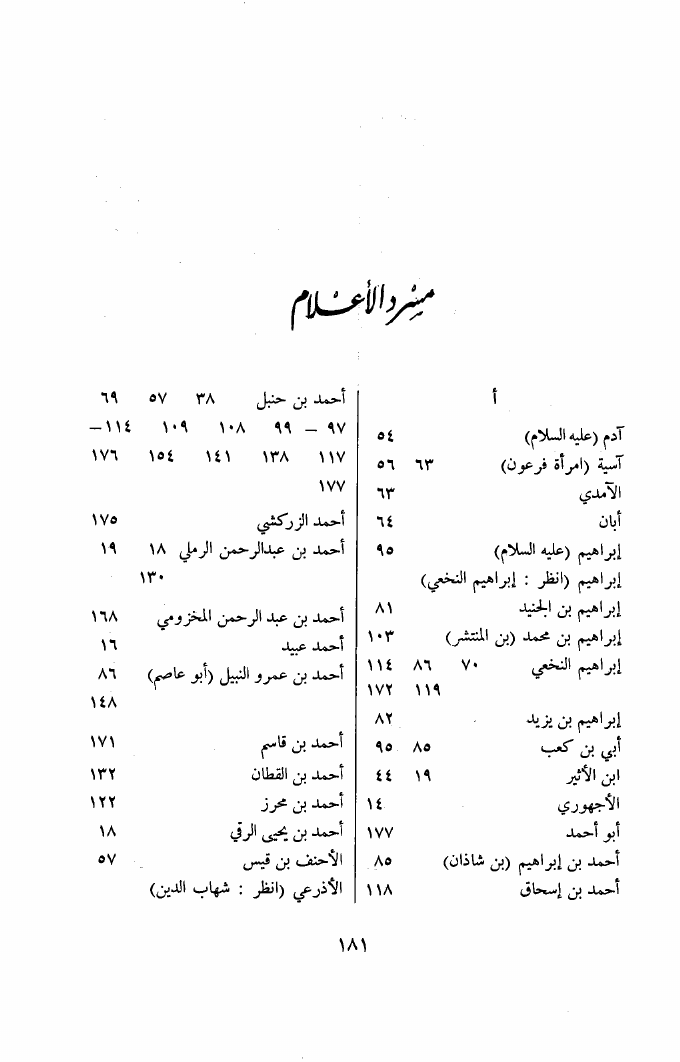 مسرد الأعلام
أ
آدم (عليه السلام) ٥٤
آسية (امرأة فرعون) ٦٣ ٥٦
الآمدي ٦٣
أبان ٦٤
إبراهيم (عليه السلام) ٩٥
إبراهيم (انظر : إبراهيم النخعي)
إبراهيم بن الجنيد ٨١
إبراهيم بن محمد (بن المنتشر) ١٠٣
إبراهيم النخعي ٧٠ ٨٦ ١١٤
١١٩ ١٧٢
إبراهيم بن يزيد ٨٢
أبي بن كعب ٨٥ ٩٥
ابن الأثير ١٩ ٤٤
الأجهوري ١٤
أبو أحمد ١٧٧
أحمد بن إبراهيم (بن شاذان) ٨٥
أحمد بن إسحاق ١١٨
أحمد بن حنبل ٣٨ ٥٧ ٦٩
٩٧ – ٩٩ ١٠٨ ١٠٩ ١١٤–
١١٧ ١٣٨ ١٤١ ١٥٤ ١٧٦
١٧٧
أحمد الزركشي ١٧٥
أحمد بن عبدالرحمن الرملي ١٨ ١٩
١٣٠
أحمد بن عبد الرحمن المخزومي ١٦٨
أحمد عبيد ١٦
أحمد بن عمرو النبيل (أبو عاصم) ٨٦
١٤٨
أحمد بن قاسم ١٧١
أحمد بن القطان ١٣٢
أحمد بن محرز ١٢٢
أحمد بن يحيى الرقي ١٨
الأحنف بن قيس ٥٧
الأذرعي (انظر : شهاب الدين)
١٨١